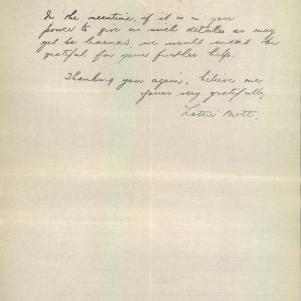 In the meantime, if it is in your
power to give us such details as may
yet be learned, we would indeed be
grateful for your further help.
Thanking you again, believe me
yours very gratefully,
Lottie Mott.